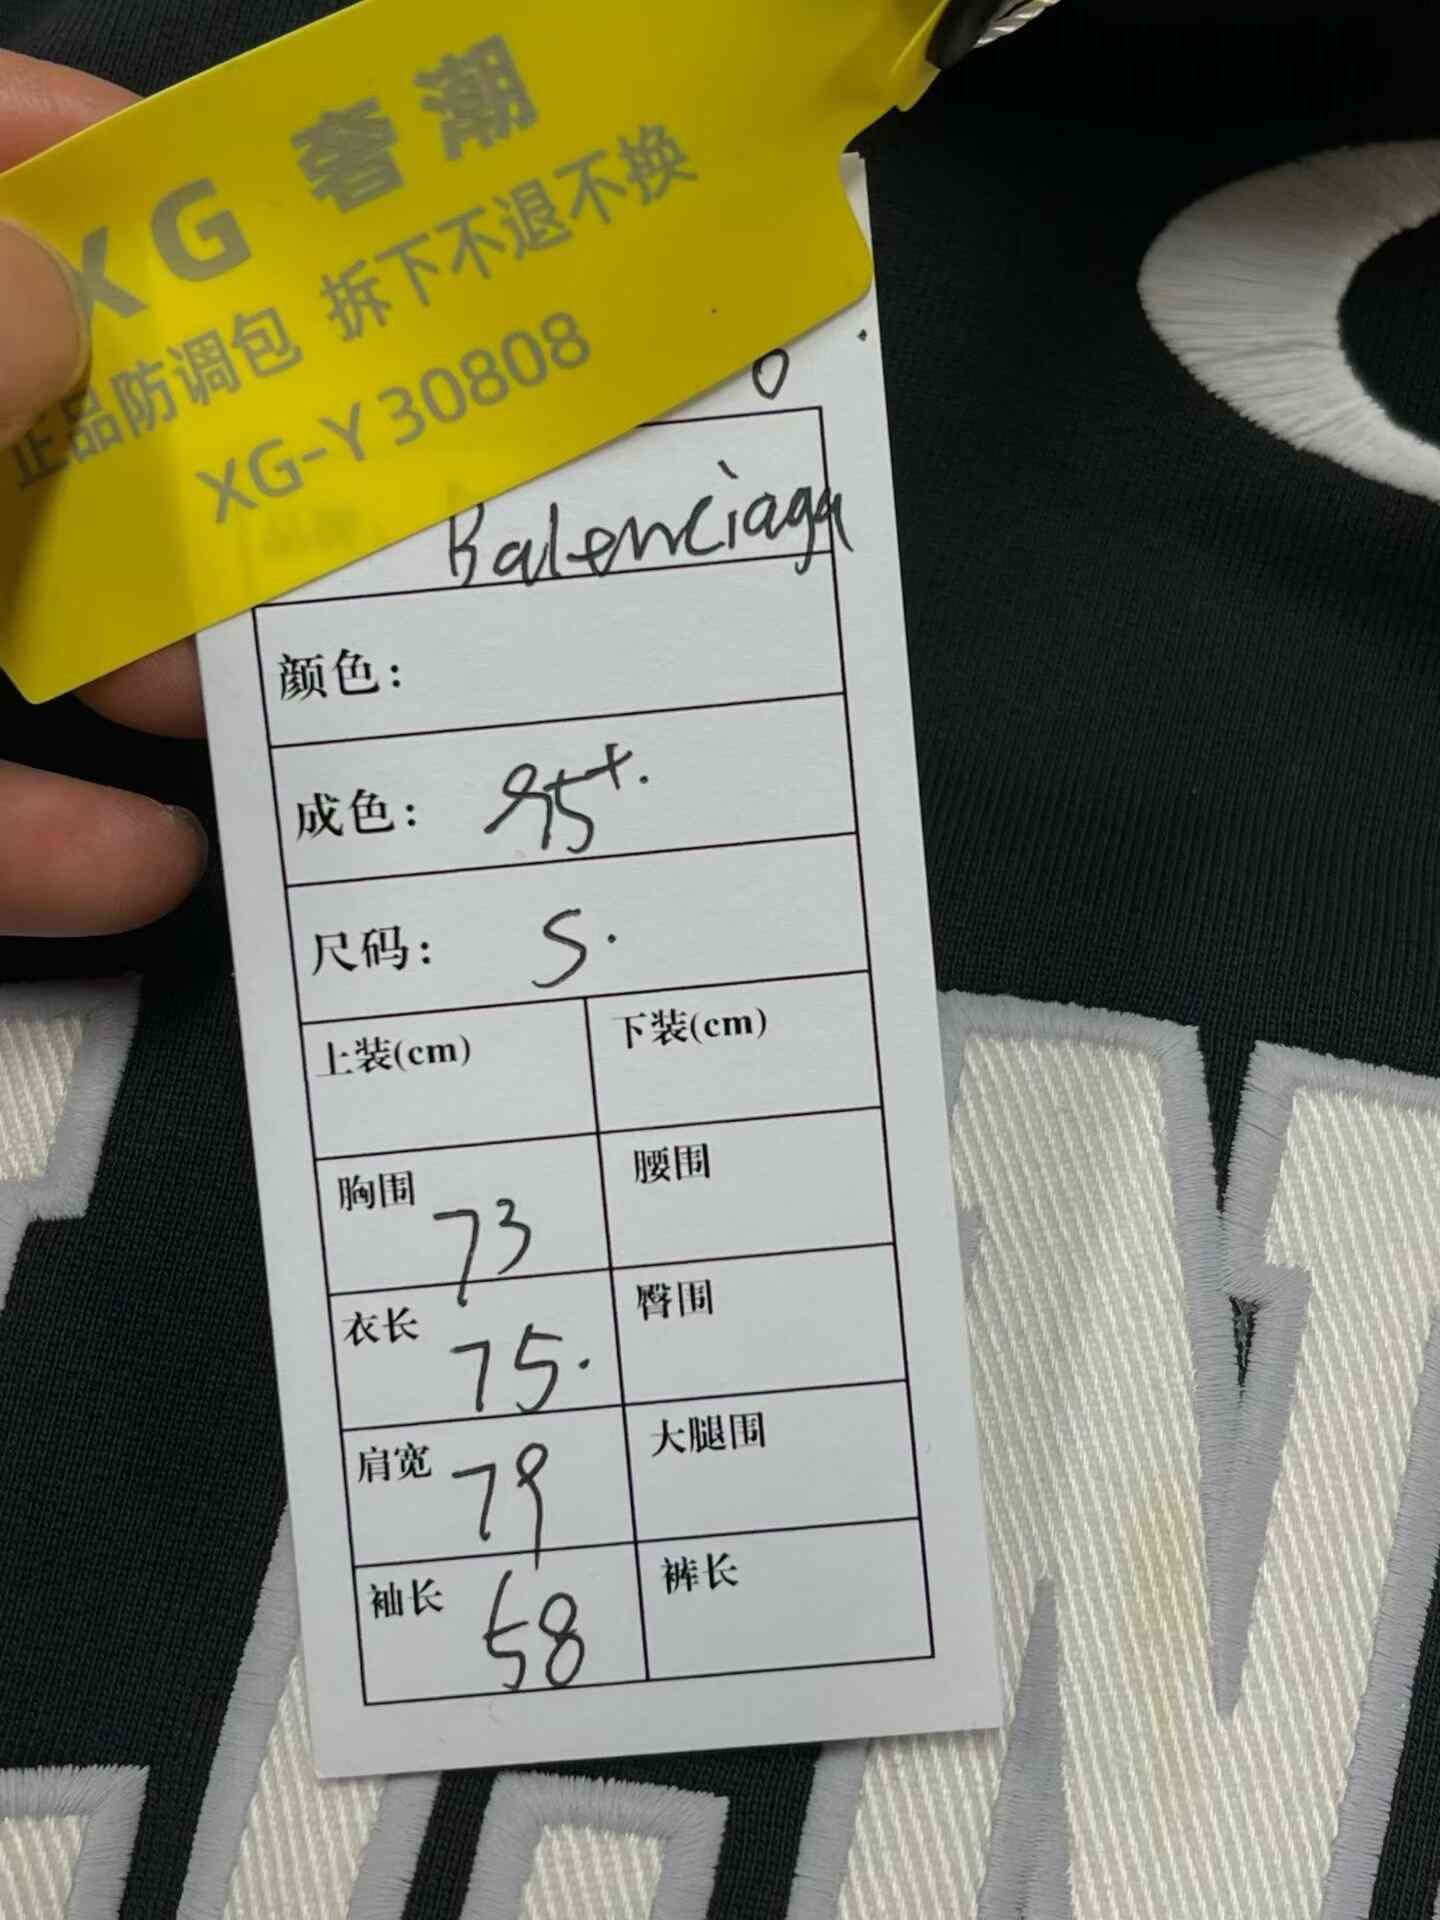 XG 奢潮
正品防调包 拆下不退不换
XG-Y30808
Balenciaga
颜色：
成色： 95+.
尺码： S.
上装(cm) 下装(cm)
胸围 73 腰围
衣长 75. 臀围
肩宽 79 大腿围
袖长 58 裤长